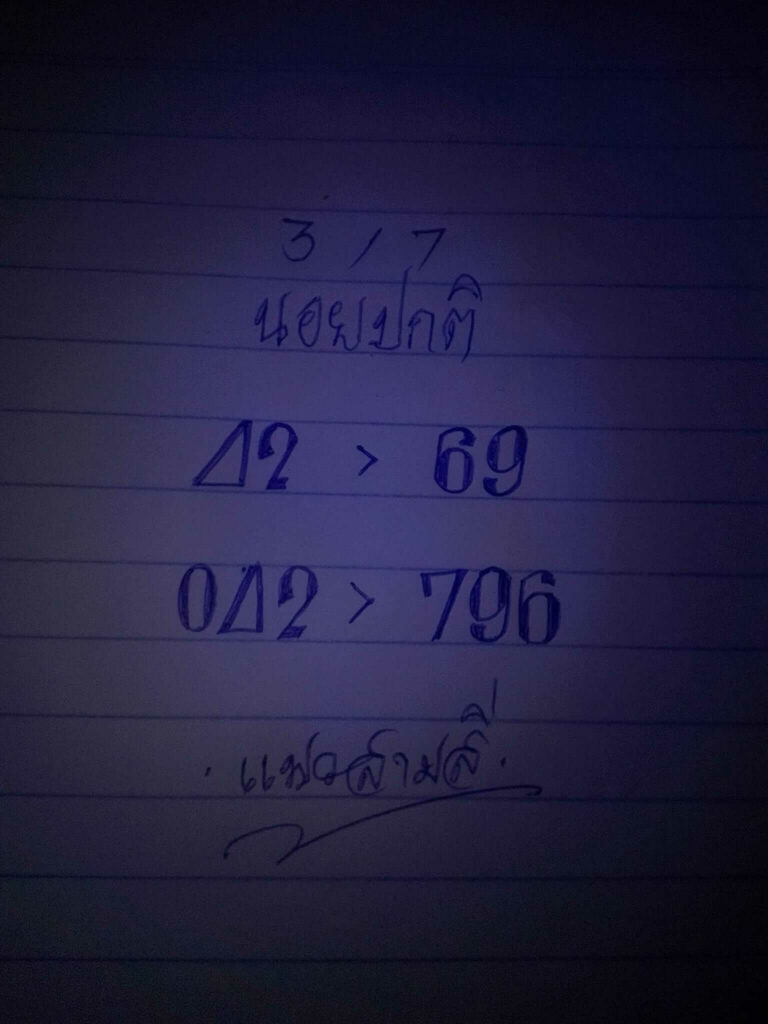 3 / 7
นอยปกติ
Δ2 > 69
0Δ2 > 796
. แมวสามสี่ .